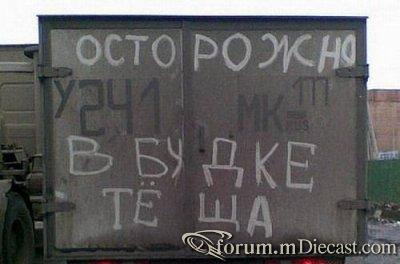 ОСТОРОЖНО
У241 МК 177
RUS
В БУДКЕ
ТЁЩА
forum.mDiecast.com